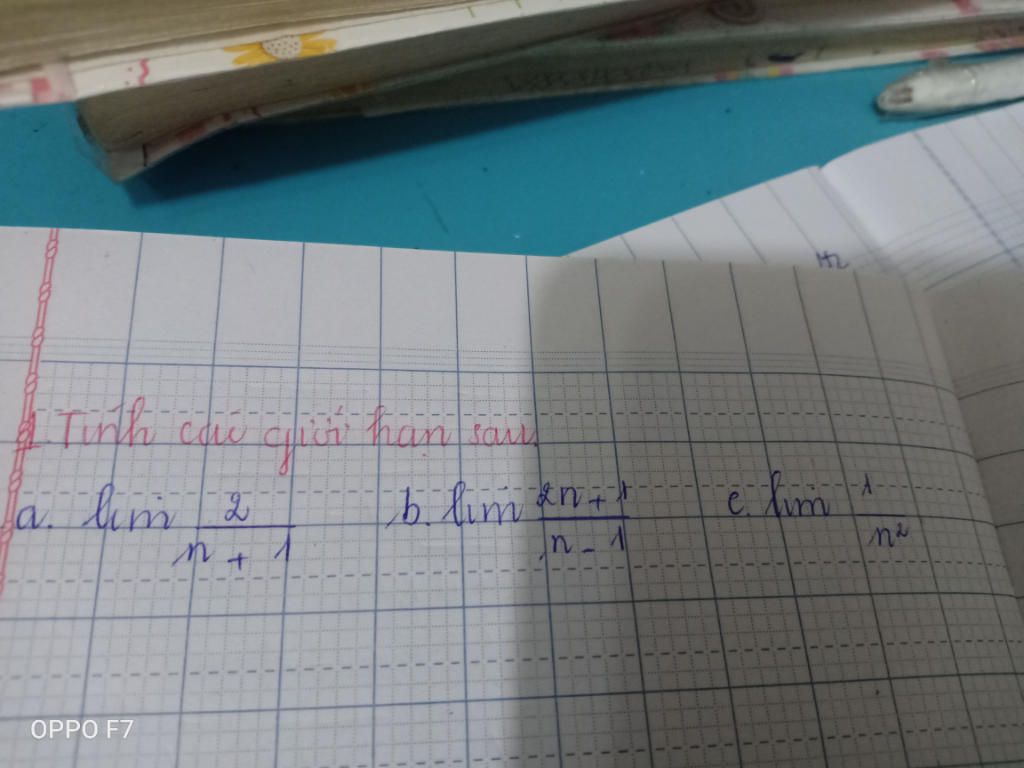 1. Tính các giới hạn sau
a. lim 2/(n + 1) b. lim (2n + 1)/(n - 1) c. lim 1/n²
OPPO F7